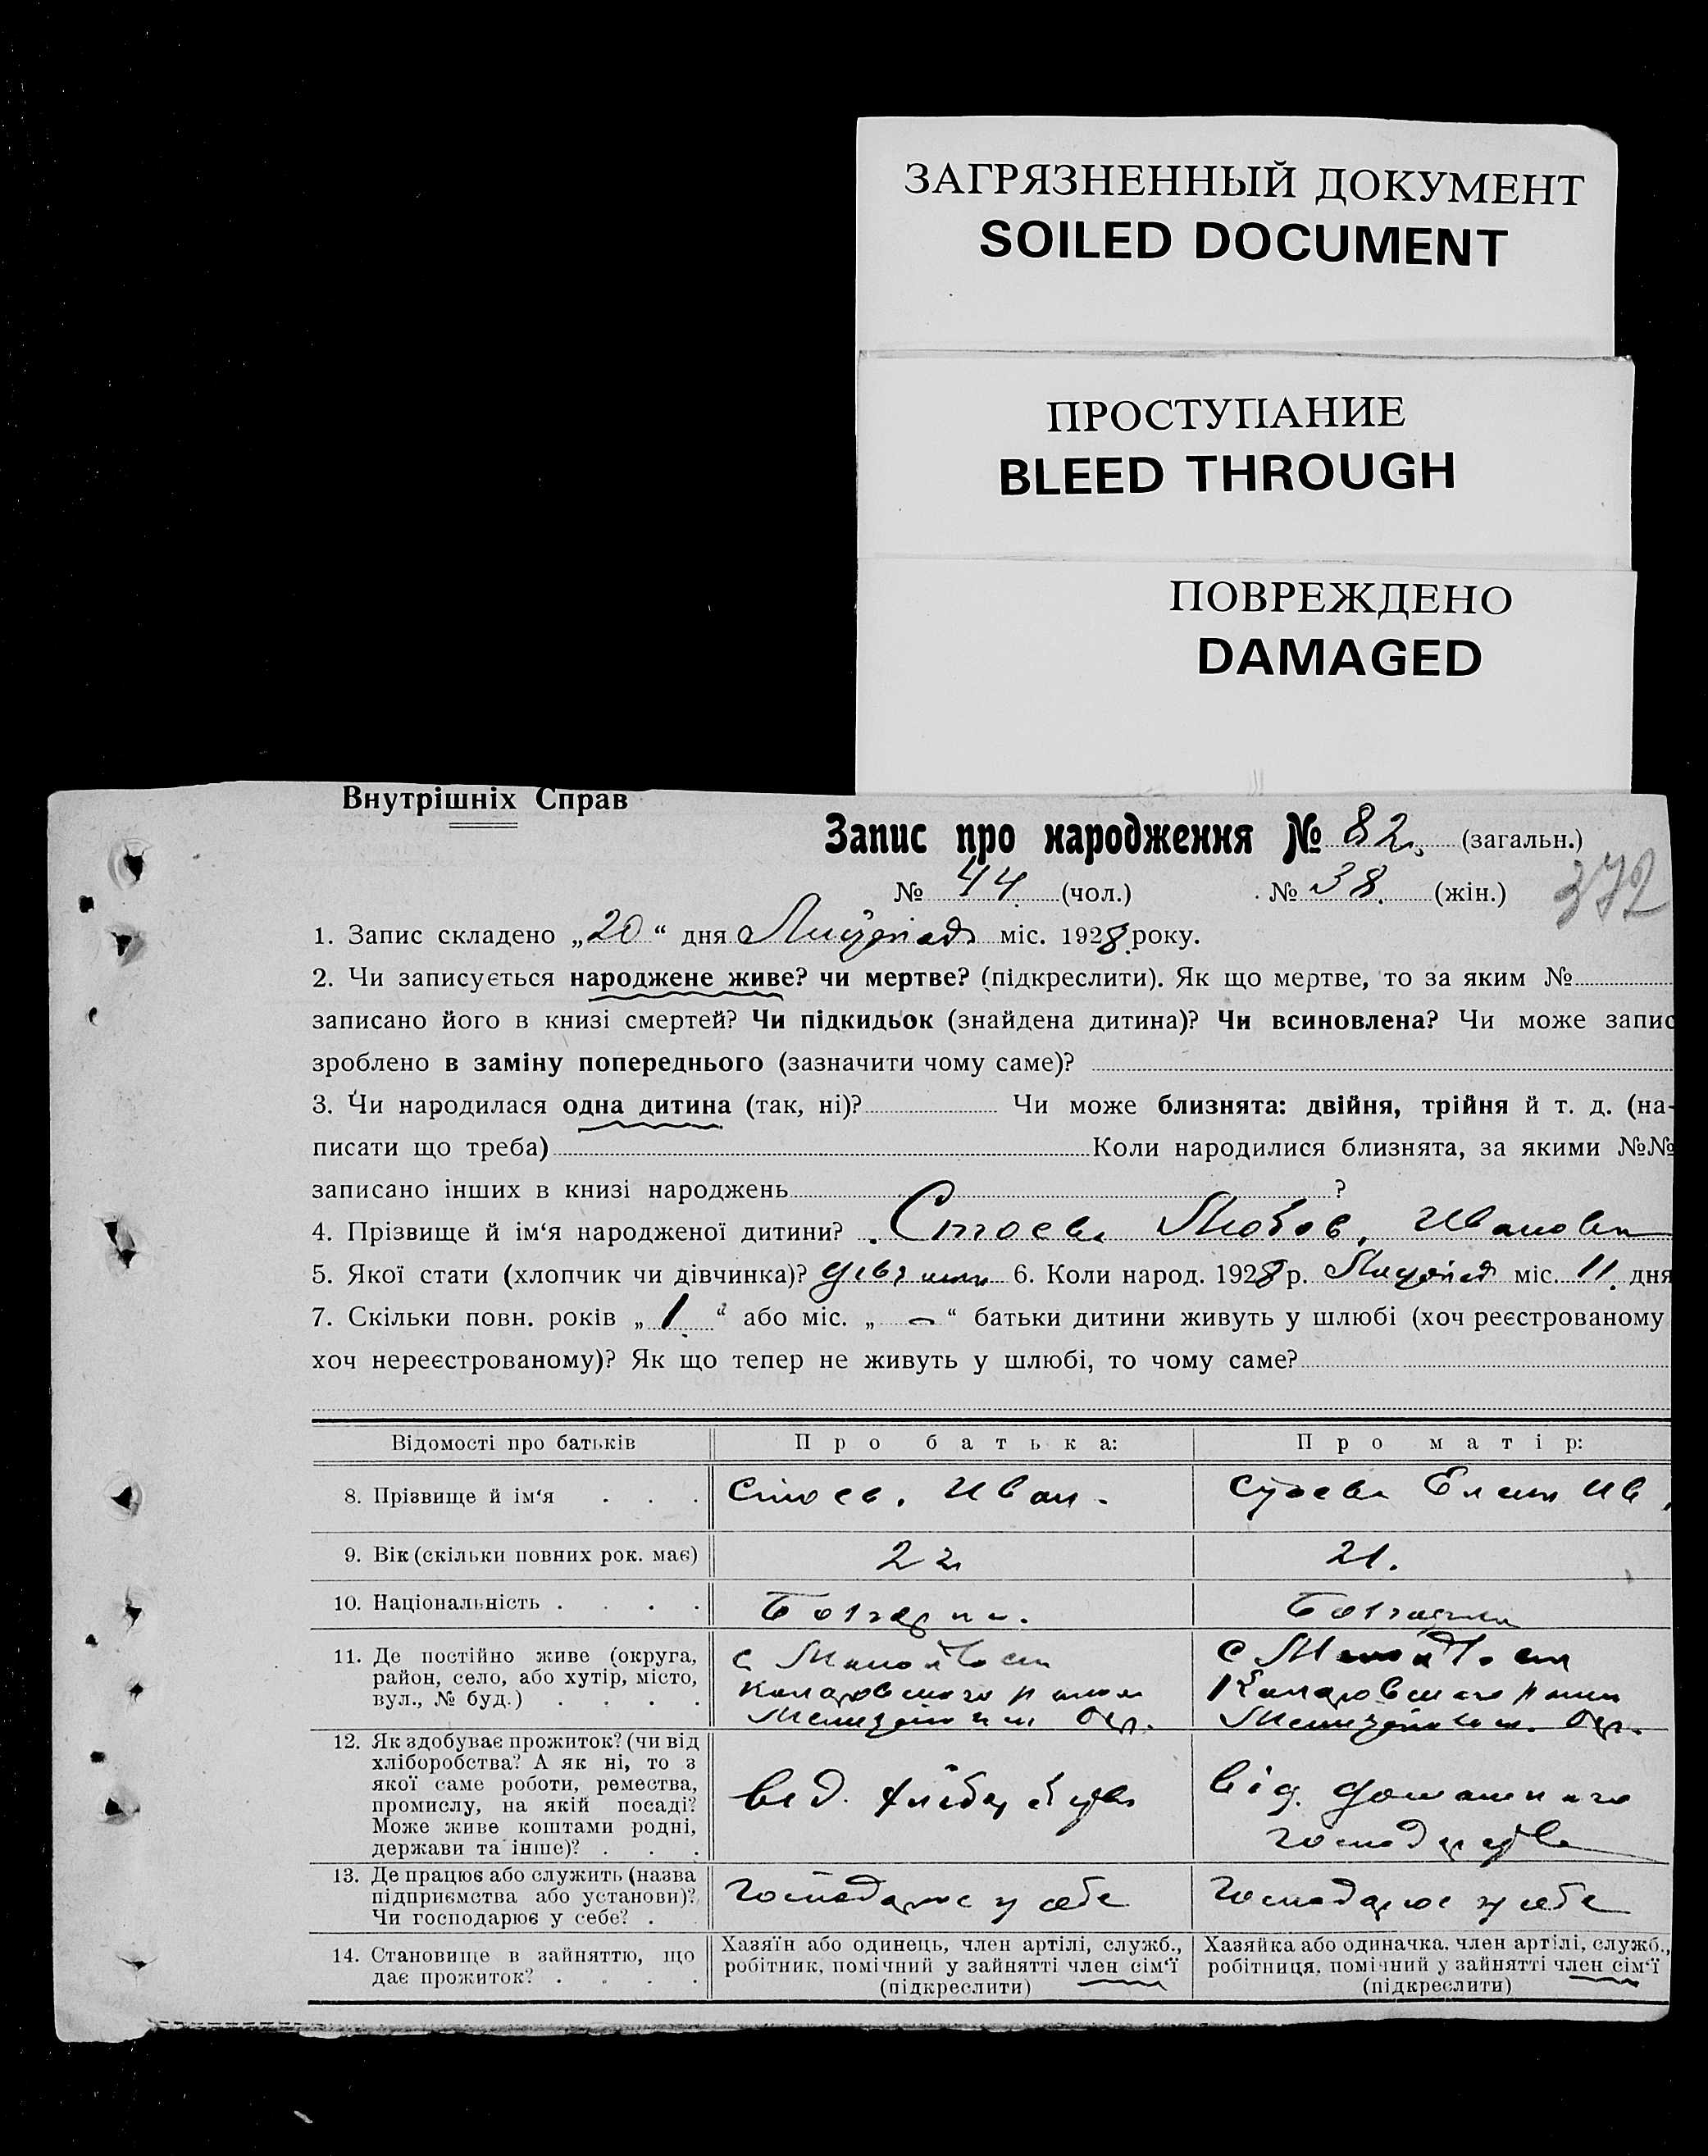 ЗАГРЯЗНЕННЫЙ ДОКУМЕНТ
SOILED DOCUMENT
ПРОСТУПАНИЕ
BLEED THROUGH
ПОВРЕЖДЕНО
DAMAGED
Внутрішніх Справ
Запис про народження № 82 (загальн.)
№ 44 (чол.) № 38. (жін.)
372
1. Запис складено „20“ дня Листопад міс. 1928 року.
2. Чи записується народжене живе? чи мертве? (підкреслити). Як що мертве, то за яким №
записано його в книзі смертей? Чи підкидьок (знайдена дитина)? Чи всиновлена? Чи може запис
зроблено в заміну попереднього (зазначити чому саме)?
3. Чи народилася одна дитина (так, ні)? Чи може близнята: двійня, трійня й т. д. (на-
писати що треба) Коли народилися близнята, за якими №№
записано інших в книзі народжень ?
4. Прізвище й ім‘я народженої дитини? Стоева Любов, Ивановна
5. Якої стати (хлопчик чи дівчинка)? дівчина 6. Коли народ. 1928 р. Листопад міс. 11. дня
7. Скільки повн. років „ 1 “ або міс. „ — “ батьки дитини живуть у шлюбі (хоч реєстрованому
хоч нереєстрованому)? Як що тепер не живуть у шлюбі, то чому саме?
Відомості про батьків Про батька: Про матір:
8. Прізвище й ім‘я . . . Стоев. Иван. Елена Ив.
9. Вік (скільки повних рок. має) 22 21.
10. Національність . . . . Болгарин. Болгарка
11. Де постійно живе (округа,
район, село, або хутір, місто,
вул., № буд.) . . . .
с
Коларовського району
Окр.
с
Коларовського району
Окр.
12. Як здобуває прожиток? (чи від
хліборобства? А як ні, то з
якої саме роботи, ремества,
промислу, на якій посаді?
Може живе коштами родні,
держави та інше)? . . .
від. хліборобства
від. домашнього
господарства
13. Де працює або служить (назва
підприємства або установи)?
Чи господарює у себе? .
Господарює у себе
Господарює у себе
14. Становище в зайняттю, що
дає прожиток? . . . .
Хазяїн або одинець, член артілі, служб.,
робітник, помічний у зайнятті член сім‘ї
(підкреслити)
Хазяйка або одиначка, член артілі, служб.,
робітниця, помічний у зайнятті член сім‘ї
(підкреслити)